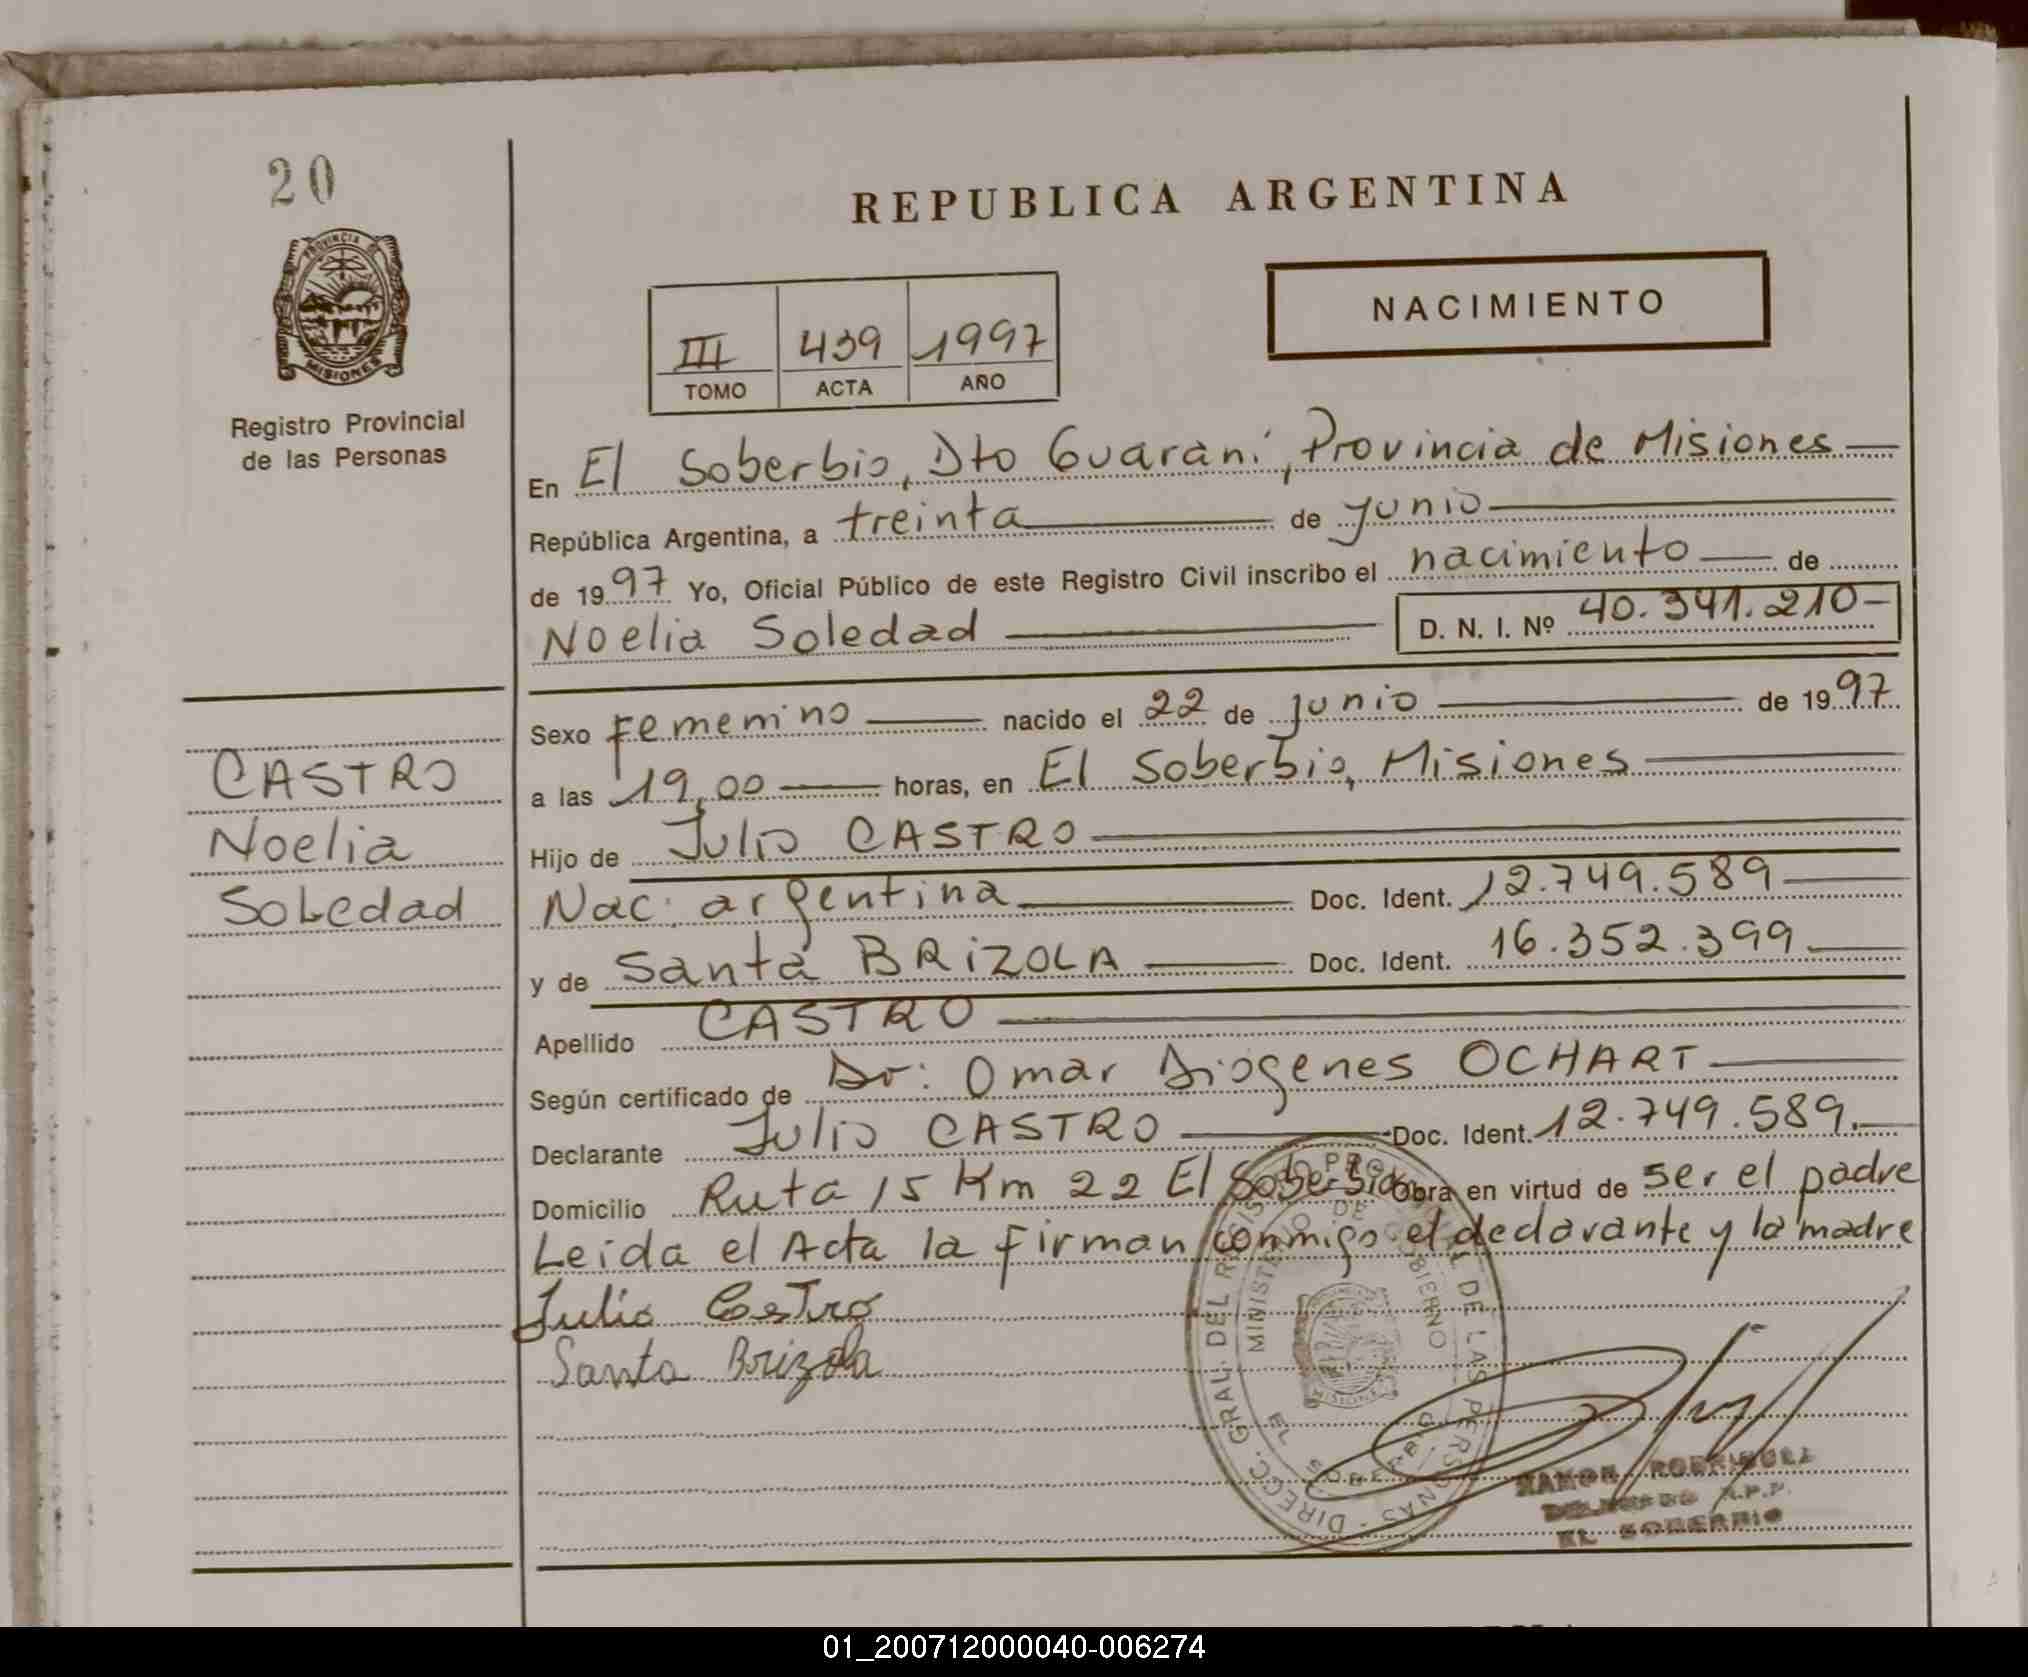 20
PROVINCIA DE
MISIONES
Registro Provincial
de las Personas
CASTRO
Noelia
Soledad
REPUBLICA ARGENTINA
NACIMIENTO
III 439 1997
TOMO ACTA AÑO
En El Soberbio, Dto Guaraní, Provincia de Misiones
República Argentina, a treinta de junio
de 1997 Yo, Oficial Público de este Registro Civil inscribo el nacimiento de
Noelia Soledad D. N. I. Nº 40.341.210-
Sexo Femenino nacido el 22 de junio de 1997
a las 19,00 horas, en El Soberbio, Misiones
Hijo de Julio CASTRO
Nac. argentina Doc. Ident. 12.749.589
y de Santa BRIZOLA Doc. Ident. 16.352.399
Apellido CASTRO
Según certificado de Dr: Omar Diógenes OCHART
Declarante Julio CASTRO Doc. Ident. 12.749.589.
Domicilio Ruta 15 Km 22 El Soberbio Obra en virtud de ser el padre
Leida el Acta la firman conmigo el declarante y la madre
Julio Castro
Santa Brizola
DIRECC. GRAL. DEL REGISTRO PROVINCIAL DE LAS PERSONAS
MINISTERIO DE GOBIERNO
MISIONES
EL SOBERBIO
RAMON RODRIGUEZ
DELEGADO R.P.P.
EL SOBERBIO
01_200712000040-006274